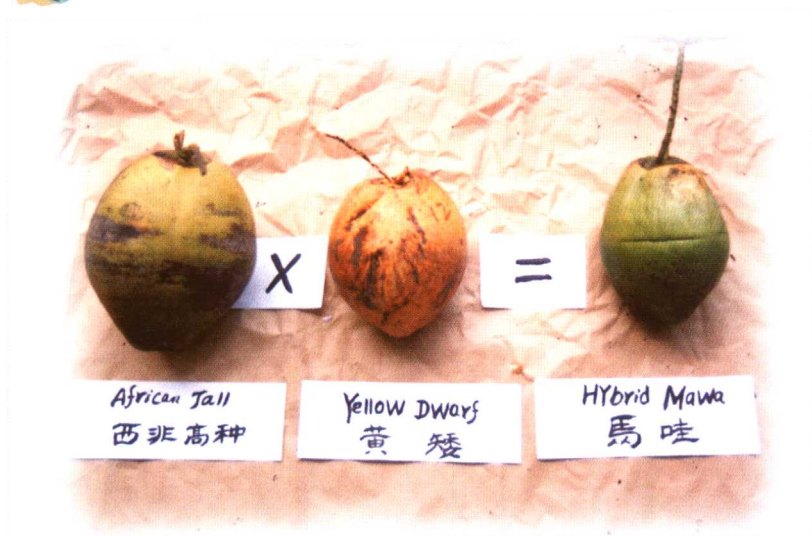 X
=
African Tall
西非高种
Yellow Dwarf
黄 矮
HYbrid Mawa
馬 哇